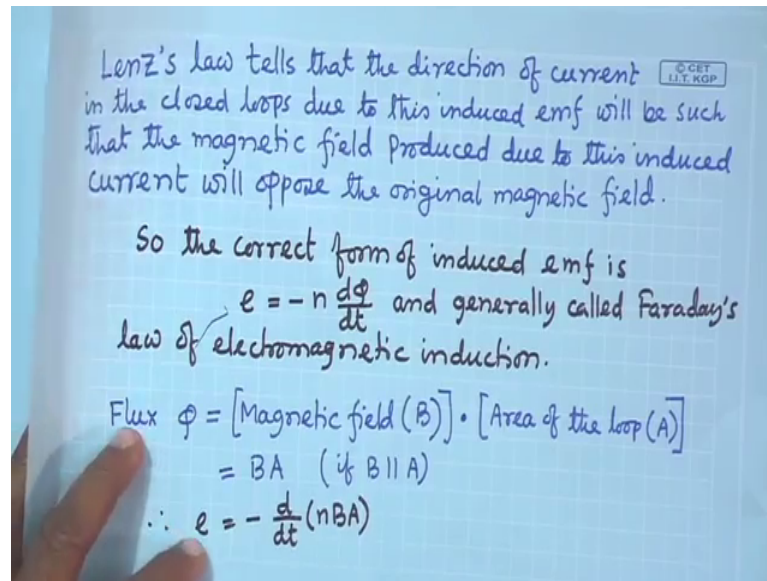 Lenz's law tells that the direction of current
© CET
I.I.T. KGP
in the closed loops due to this induced emf will be such
that the magnetic field produced due to this induced
current will oppose the original magnetic field.
So the correct form of induced emf is
e = -n dφ/dt and generally called Faraday's
law of electromagnetic induction.
Flux φ = [Magnetic field (B)] • [Area of the loop (A)]
= BA (if B || A)
∴ e = - d/dt (nBA)